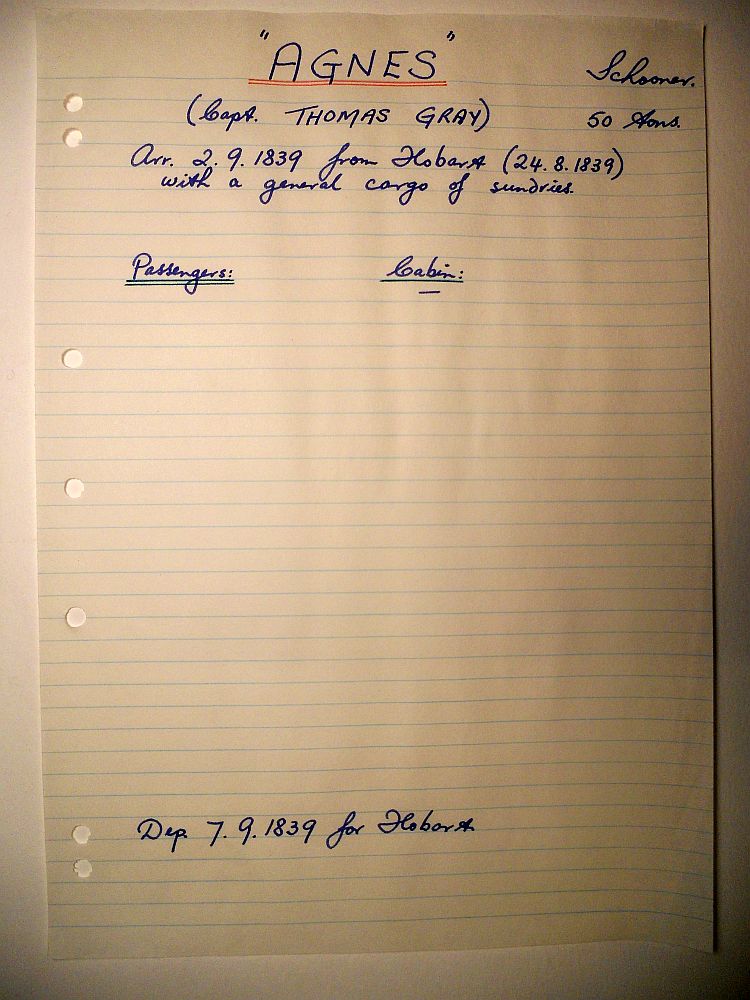 "AGNES"
Schooner.
(Capt. THOMAS GRAY)
50 tons.
Arr. 2.9.1839 from Hobart (24.8.1839)
with a general cargo of sundries.
Passengers:
Cabin:
—
Dep. 7.9.1839 for Hobart